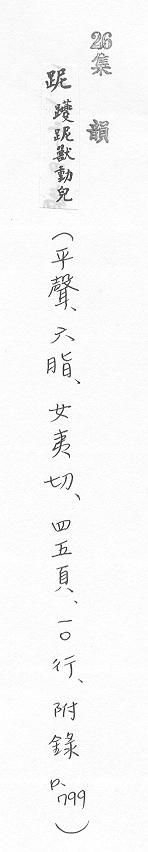 26集韻
跜 躨跜獸動皃
（平聲、六脂、女夷切、四五頁、一〇行、附錄 p.799）